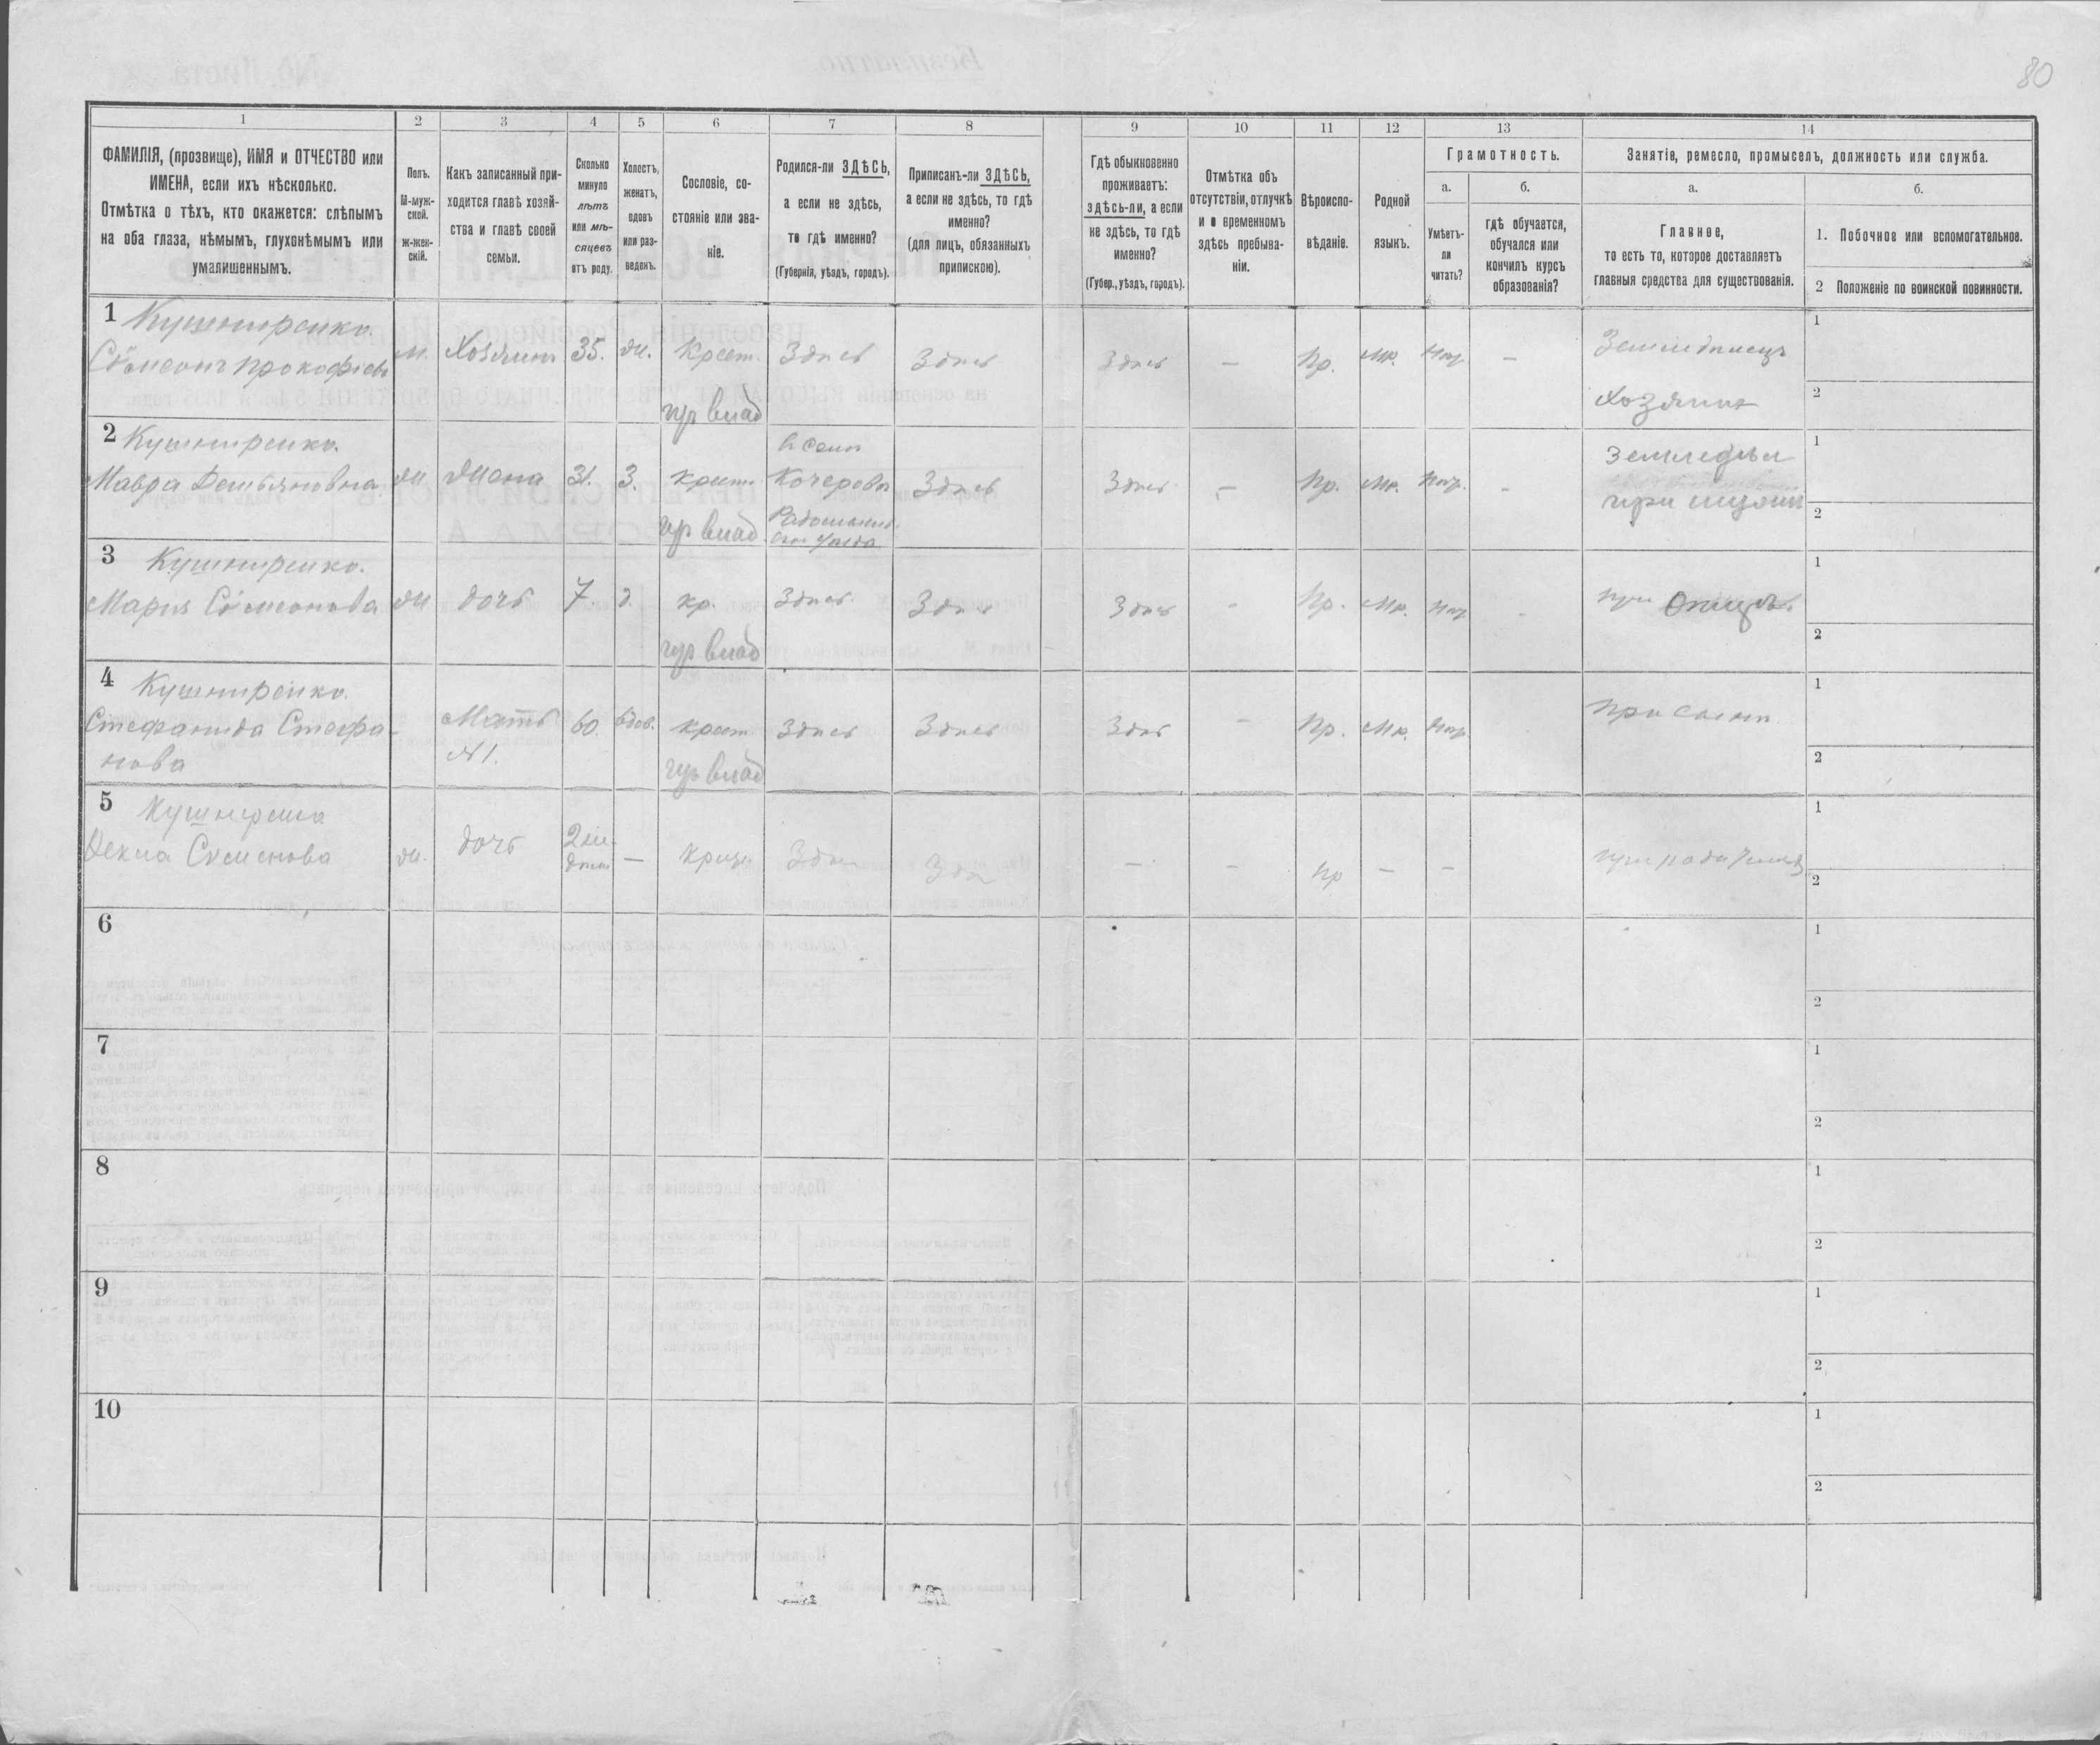 80
1
2
3
4
5
6
7
8
9
10
11
12
13
14
ФАМИЛІЯ, (прозвище), ИМЯ и ОТЧЕСТВО или
ИМЕНА, если ихъ нѣсколько.
Отмѣтка о тѣхъ, кто окажется: слѣпымъ
на оба глаза, нѣмымъ, глухонѣмымъ или
умалишеннымъ.
Полъ.
М-муж-
ской.
Ж-жен-
скій.
Какъ записанный при-
ходится главѣ хозяй-
ства и главѣ своей
семьи.
Сколько
минуло
лѣтъ
или мѣ-
сяцевъ
отъ роду.
Холостъ,
женатъ,
вдовъ
или раз-
веденъ.
Сословіе, со-
стояніе или зва-
ніе.
Родился-ли ЗДѢСЬ,
а если не здѣсь,
то гдѣ именно?
(Губернія, уѣздъ, городъ).
Приписанъ-ли ЗДѢСЬ,
а если не здѣсь, то гдѣ
именно?
(для лицъ, обязанныхъ
припискою).
Гдѣ обыкновенно
проживаетъ:
здѣсь-ли, а если
не здѣсь, то гдѣ
именно?
(Губер., уѣздъ, городъ).
Отмѣтка объ
отсутствіи, отлучкѣ
и о временномъ
здѣсь пребыва-
ніи.
Вѣроиспо-
вѣданіе.
Родной
языкъ.
Грамотность.
а.
Умѣетъ-
ли
читать?
б.
гдѣ обучается,
обучался или
кончилъ курсъ
образованія?
Занятіе, ремесло, промыселъ, должность или служба.
а.
Главное,
то есть то, которое доставляетъ
главныя средства для существованія.
б.
1. Побочное или вспомогательное.
2 Положеніе по воинской повинности.
1 Кушниренко.
Сѵмеонъ Прокофіевъ
м.
Хозяинъ
35.
ж.
Крест.
Здѣсь
Здѣсь
Здѣсь
—
Пр.
Мр.
Нгр.
—
Земледѣлецъ
Хозяинъ
1
2
гр влад
2 Кушниренко.
Мавра Демьяновна
ж
жена
31.
З.
крест.
гр влад
в селѣ
Кочерово
Радомысль.
ска уѣзда
Здѣсь
Здѣсь
—
Пр.
Мр.
Нгр.
-
Земледѣл
при мужѣ
1
2
3 Кушниренко.
Марія Сѵмеонова
ж
дочь
7
д.
кр.
гр влад
Здѣсь
Здѣсь
Здѣсь
-
Пр.
Мр.
Нгр
-
при Отцѣ
1
2
4 Кушниренко.
Стефанида Стефа-
нова
Мать
№1.
60.
вдов.
крест
гр влад
Здѣсь
Здѣсь
Здѣсь
-
Пр.
Мр.
Нгр.
при сынѣ
1
2
5
Сѵменова
ж.
дочь
—
Здѣсь
—
—
пр
—
—
1
2
6
1
2
7
1
2
8
1
2
9
1
2
10
1
2